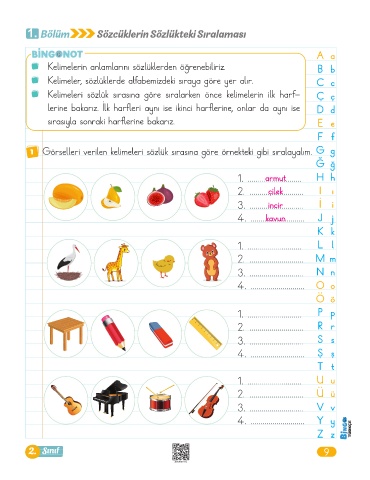 1. Bölüm Sözcüklerin Sözlükteki Sıralaması
BİNGONOT
Kelimelerin anlamlarını sözlüklerden öğrenebiliriz.
Kelimeler, sözlüklerde alfabemizdeki sıraya göre yer alır.
Kelimeleri sözlük sırasına göre sıralarken önce kelimelerin ilk harf-
lerine bakarız. İlk harfleri aynı ise ikinci harflerine, onlar da aynı ise
sırasıyla sonraki harflerine bakarız.
1 Görselleri verilen kelimeleri sözlük sırasına göre örnekteki gibi sıralayalım.
1. armut
2. çilek
3. incir
4. kavun
1. ....................
2. ....................
3. ....................
4. ....................
1. ....................
2. ....................
3. ....................
4. ....................
1. ....................
2. ....................
3. ....................
4. ....................
A a
B b
C c
Ç ç
D d
E e
F f
G g
Ğ ğ
H h
I ı
İ i
J j
K k
L l
M m
N n
O o
Ö ö
P p
R r
S s
Ş ş
T t
U u
Ü ü
V v
Y y
Z z
BİNGO
2. Sınıf
9